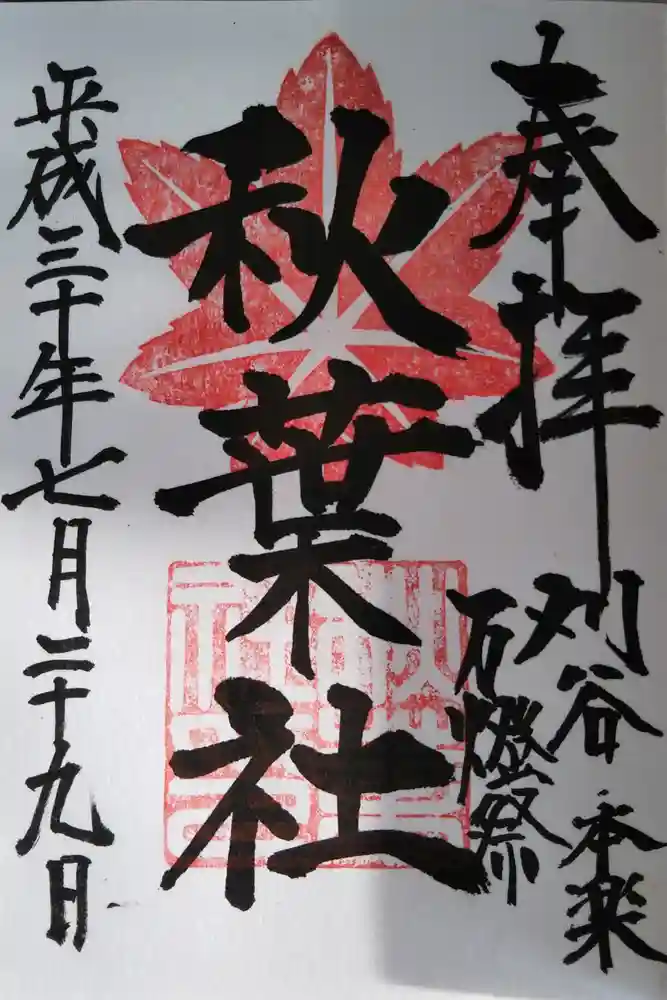 奉拝
刈谷
万燈祭
本楽
秋葉社
平成三十年七月二十九日